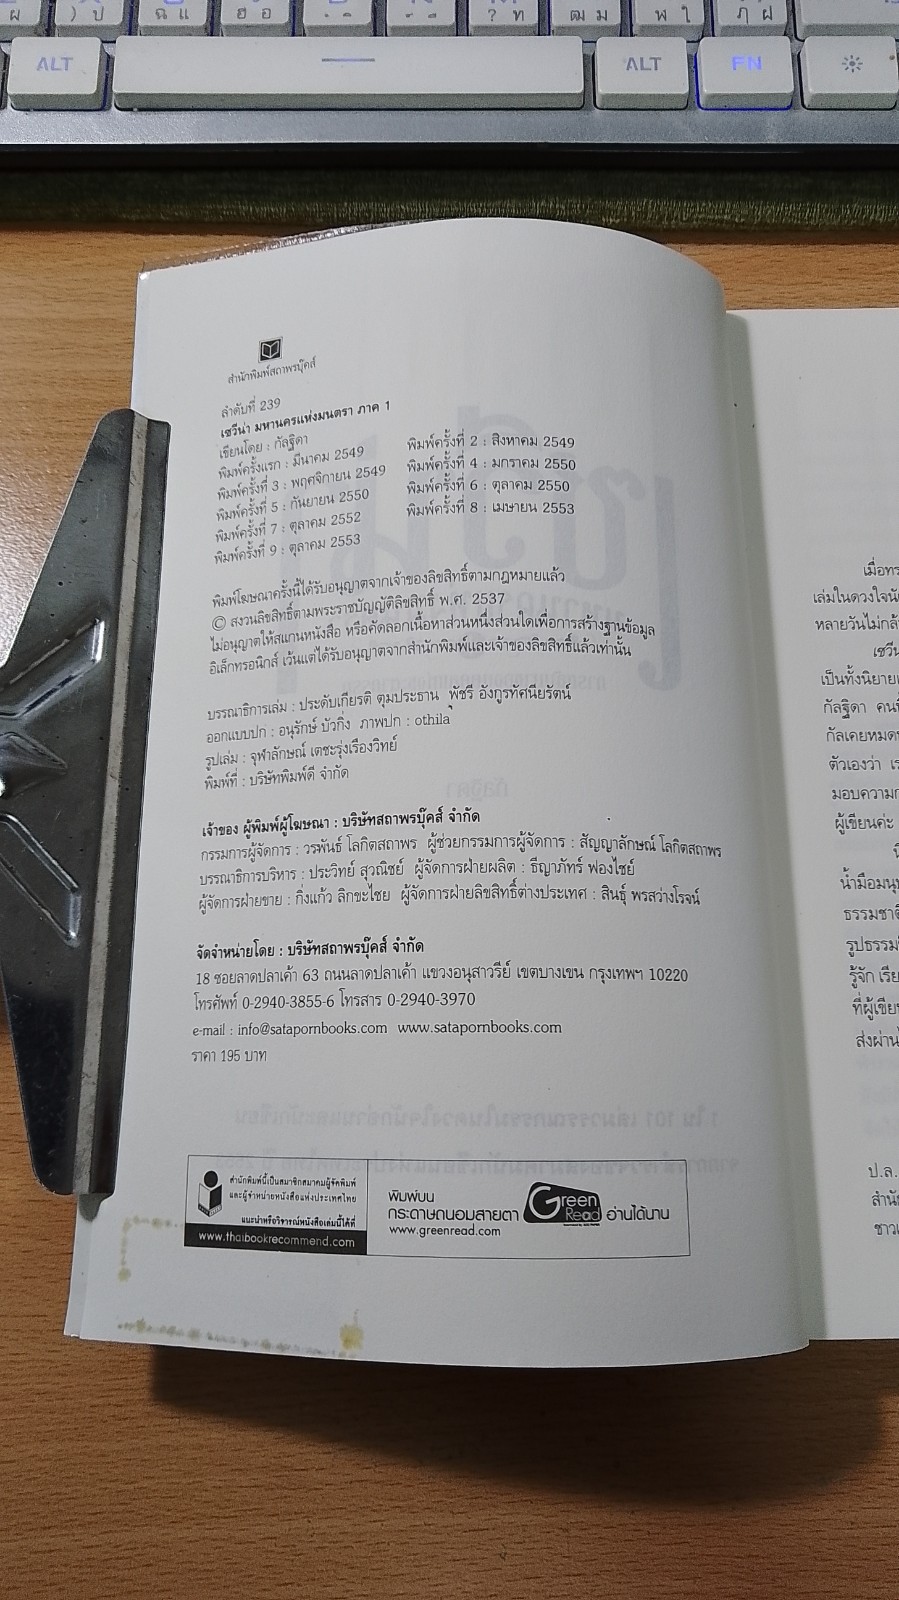 ผ
) ป
ฉ แ
ฮ อ
? ท
ฒ ม
พ ใ
ฦ ฝ
ALT
ALT
FN
สำนักพิมพ์สถาพรบุ๊คส์
ลำดับที่ 239
เซวีน่า มหานครแห่งมนตรา ภาค 1
เขียนโดย : กัลฐิดา
พิมพ์ครั้งแรก : มีนาคม 2549 พิมพ์ครั้งที่ 2 : สิงหาคม 2549
พิมพ์ครั้งที่ 3 : พฤศจิกายน 2549 พิมพ์ครั้งที่ 4 : มกราคม 2550
พิมพ์ครั้งที่ 5 : กันยายน 2550 พิมพ์ครั้งที่ 6 : ตุลาคม 2550
พิมพ์ครั้งที่ 7 : ตุลาคม 2552 พิมพ์ครั้งที่ 8 : เมษายน 2553
พิมพ์ครั้งที่ 9 : ตุลาคม 2553
พิมพ์โฆษณาครั้งนี้ได้รับอนุญาตจากเจ้าของลิขสิทธิ์ตามกฎหมายแล้ว
© สงวนลิขสิทธิ์ตามพระราชบัญญัติลิขสิทธิ์ พ.ศ. 2537
ไม่อนุญาตให้สแกนหนังสือ หรือคัดลอกเนื้อหาส่วนหนึ่งส่วนใดเพื่อการสร้างฐานข้อมูล
อิเล็กทรอนิกส์ เว้นแต่ได้รับอนุญาตจากสำนักพิมพ์และเจ้าของลิขสิทธิ์แล้วเท่านั้น
บรรณาธิการเล่ม : ประดับเกียรติ ตุมประธาน พัชรี อังกูรทัศนียรัตน์
ออกแบบปก : อนุรักษ์ บัวกิ่ง ภาพปก : othila
รูปเล่ม : จุฬาลักษณ์ เตชะรุ่งเรืองวิทย์
พิมพ์ที่ : บริษัทพิมพ์ดี จำกัด
เจ้าของ ผู้พิมพ์ผู้โฆษณา : บริษัทสถาพรบุ๊คส์ จำกัด
กรรมการผู้จัดการ : วรพันธ์ โลกิตสถาพร ผู้ช่วยกรรมการผู้จัดการ : สัญญาลักษณ์ โลกิตสถาพร
บรรณาธิการบริหาร : ประวิทย์ สุวณิชย์ ผู้จัดการฝ่ายผลิต : ธีญาภัทร์ ฟองไชย์
ผู้จัดการฝ่ายขาย : กิ่งแก้ว ลิกขะไชย ผู้จัดการฝ่ายลิขสิทธิ์ต่างประเทศ : สินธุ์ พรสว่างโรจน์
จัดจำหน่ายโดย : บริษัทสถาพรบุ๊คส์ จำกัด
18 ซอยลาดปลาเค้า 63 ถนนลาดปลาเค้า แขวงอนุสาวรีย์ เขตบางเขน กรุงเทพฯ 10220
โทรศัพท์ 0-2940-3855-6 โทรสาร 0-2940-3970
e-mail : info@satapornbooks.com www.satapornbooks.com
ราคา 195 บาท
สำนักพิมพ์นี้เป็นสมาชิกสมาคมผู้จัดพิมพ์
และผู้จำหน่ายหนังสือแห่งประเทศไทย
แนะนำหรือวิจารณ์หนังสือเล่มนี้ได้ที่
www.thaibookrecommend.com
พิมพ์บน
กระดาษถนอมสายตา Green Read อ่านได้นาน
www.greenread.com
เมื่อทร
เล่มในดวงใจนั
หลายวันไม่กล้
เซวีน
เป็นทั้งนิยาย
กัลฐิดา คนนี้
กัลเคยหมด
ตัวเองว่า เร
มอบความก
ผู้เขียนค่ะ
น้ำมือมนุษ
ธรรมชาติ
รูปธรรม
รู้จัก เรีย
ที่ผู้เขีย
ส่งผ่าน
ป.ล.
สำนั
ชาว